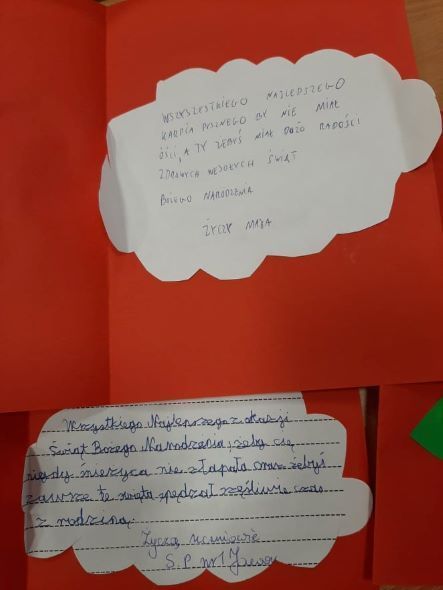 WSZYSZESTKIEGO NAJLEPSZEGO
KARPIA PYSZNEGO BY NIE MIAŁ
OŚCI, A TY ŻEBYŚ MIAŁ DÓŻO RADOŚCI
ZDROWYCH WESOŁYCH ŚWIĄT
BOŻEGO NARODZENIA
ŻYCZY MAJA
Wszystkiego Najleprzego z okazji
Świąt Bożego Narodzenia, żeby cię
nigdy śnieżyca nie złapała oraz żebyś
zawsze te święta spędzał szęśliwie czas
z rodziną.
Życzą uczniowie
S.P. nr 1